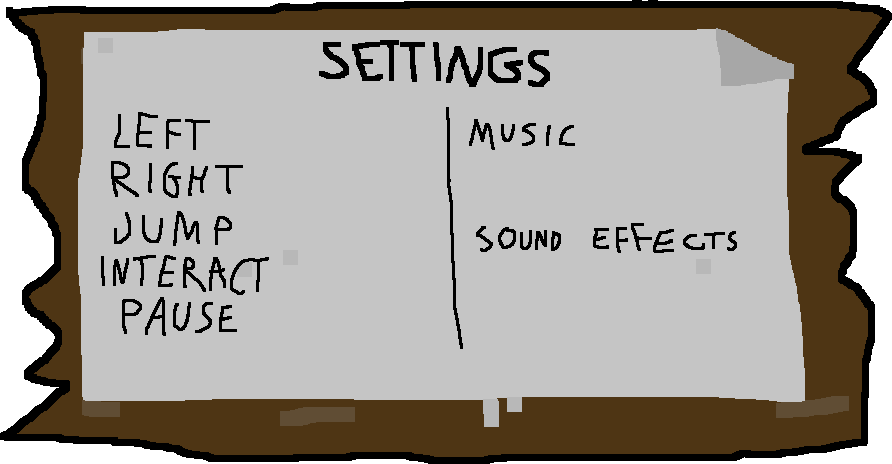 SETTINGS
LEFT
RIGHT
JUMP
INTERACT
PAUSE
MUSIC
SOUND EFFECTS